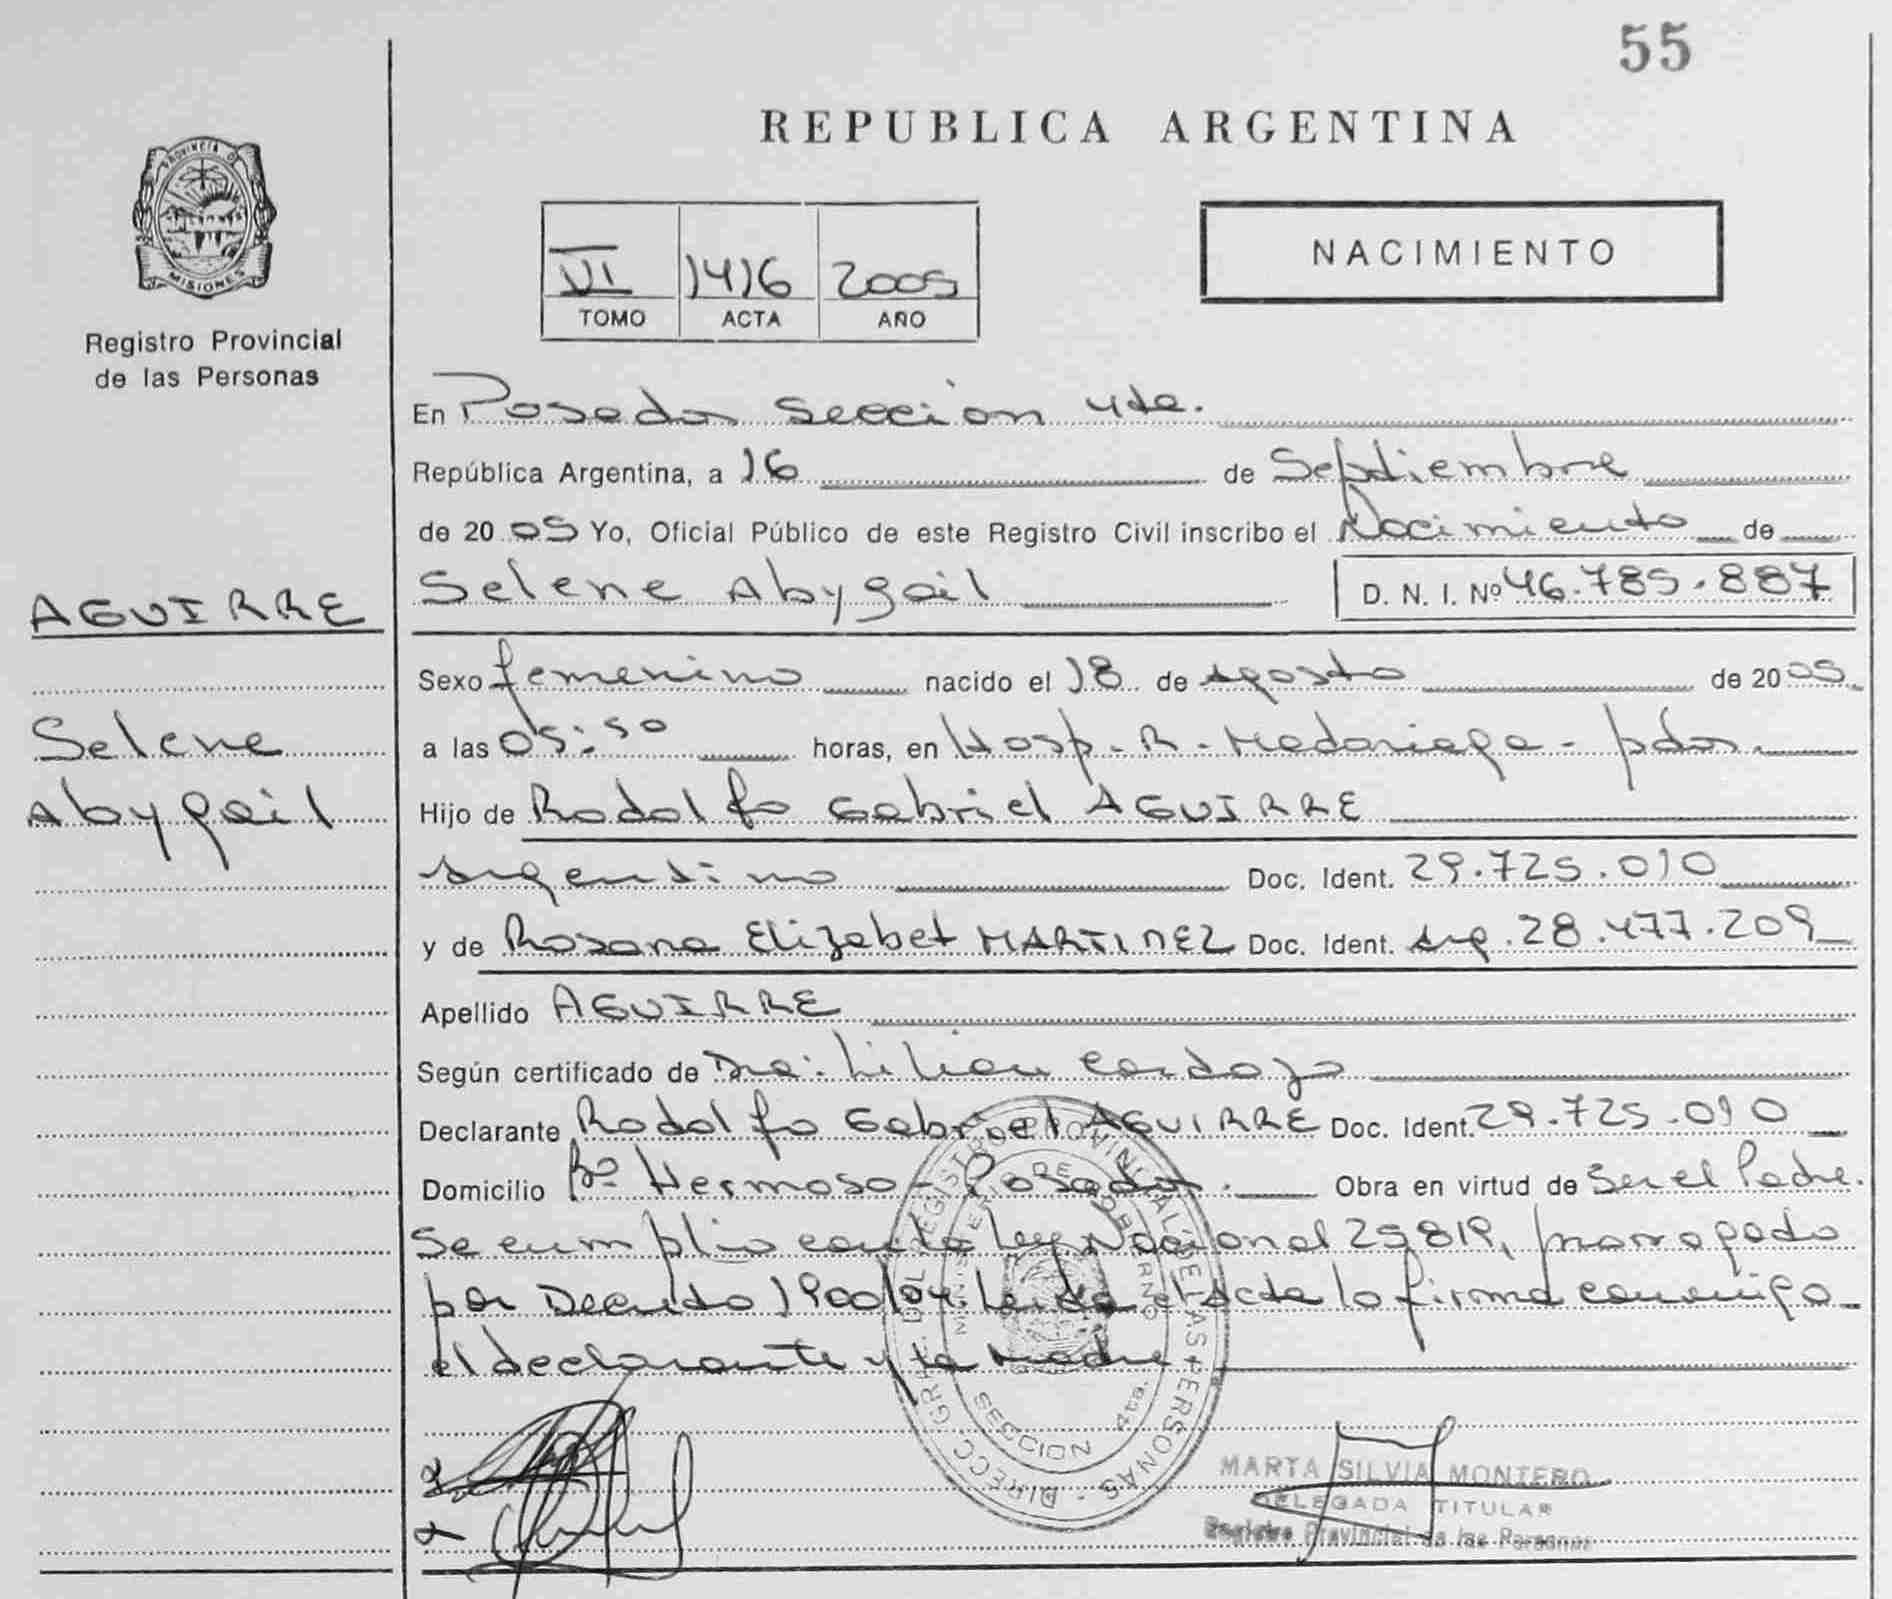 55
REPUBLICA ARGENTINA
PROVINCIA D
MISIONES
Registro Provincial
de las Personas
VI 1416 2005
TOMO ACTA AÑO
NACIMIENTO
En Posadas Sección 4ta.
República Argentina, a 16 de Septiembre
de 2005 Yo, Oficial Público de este Registro Civil inscribo el Nacimiento de
AGUIRRE
Selene
Abygail
Selene Abygail D. N. I. Nº 46.785.887
Sexo femenino nacido el 18 de Agosto de 2005
a las 05:50 horas, en Hosp. R. Madariaga - pdas.
Hijo de Rodolfo Gabriel AGUIRRE
Argentino Doc. Ident. 29.725.010
y de Rosana Elizabet MARTINEZ Doc. Ident. Arg. 28.477.209
Apellido AGUIRRE
Según certificado de Dra. Lilian Cardozo
Declarante Rodolfo Gabriel AGUIRRE Doc. Ident. 29.725.010
Domicilio Bº Hermoso - Posadas. Obra en virtud de Ser el Padre.
Se cumplio con la Ley Nacional 25819, prorrogado
por Decreto 1900/04. Leida el Acta lo firma conmigo
el declarante y la Madre
DIRECC. GRAL. DEL REGISTRO PROVINCIAL DE LAS PERSONAS
MINISTERIO DE GOBIERNO
SECCION 4ta.
MARTA SILVIA MONTERO
DELEGADA TITULAR
Registro Provincial de las Personas